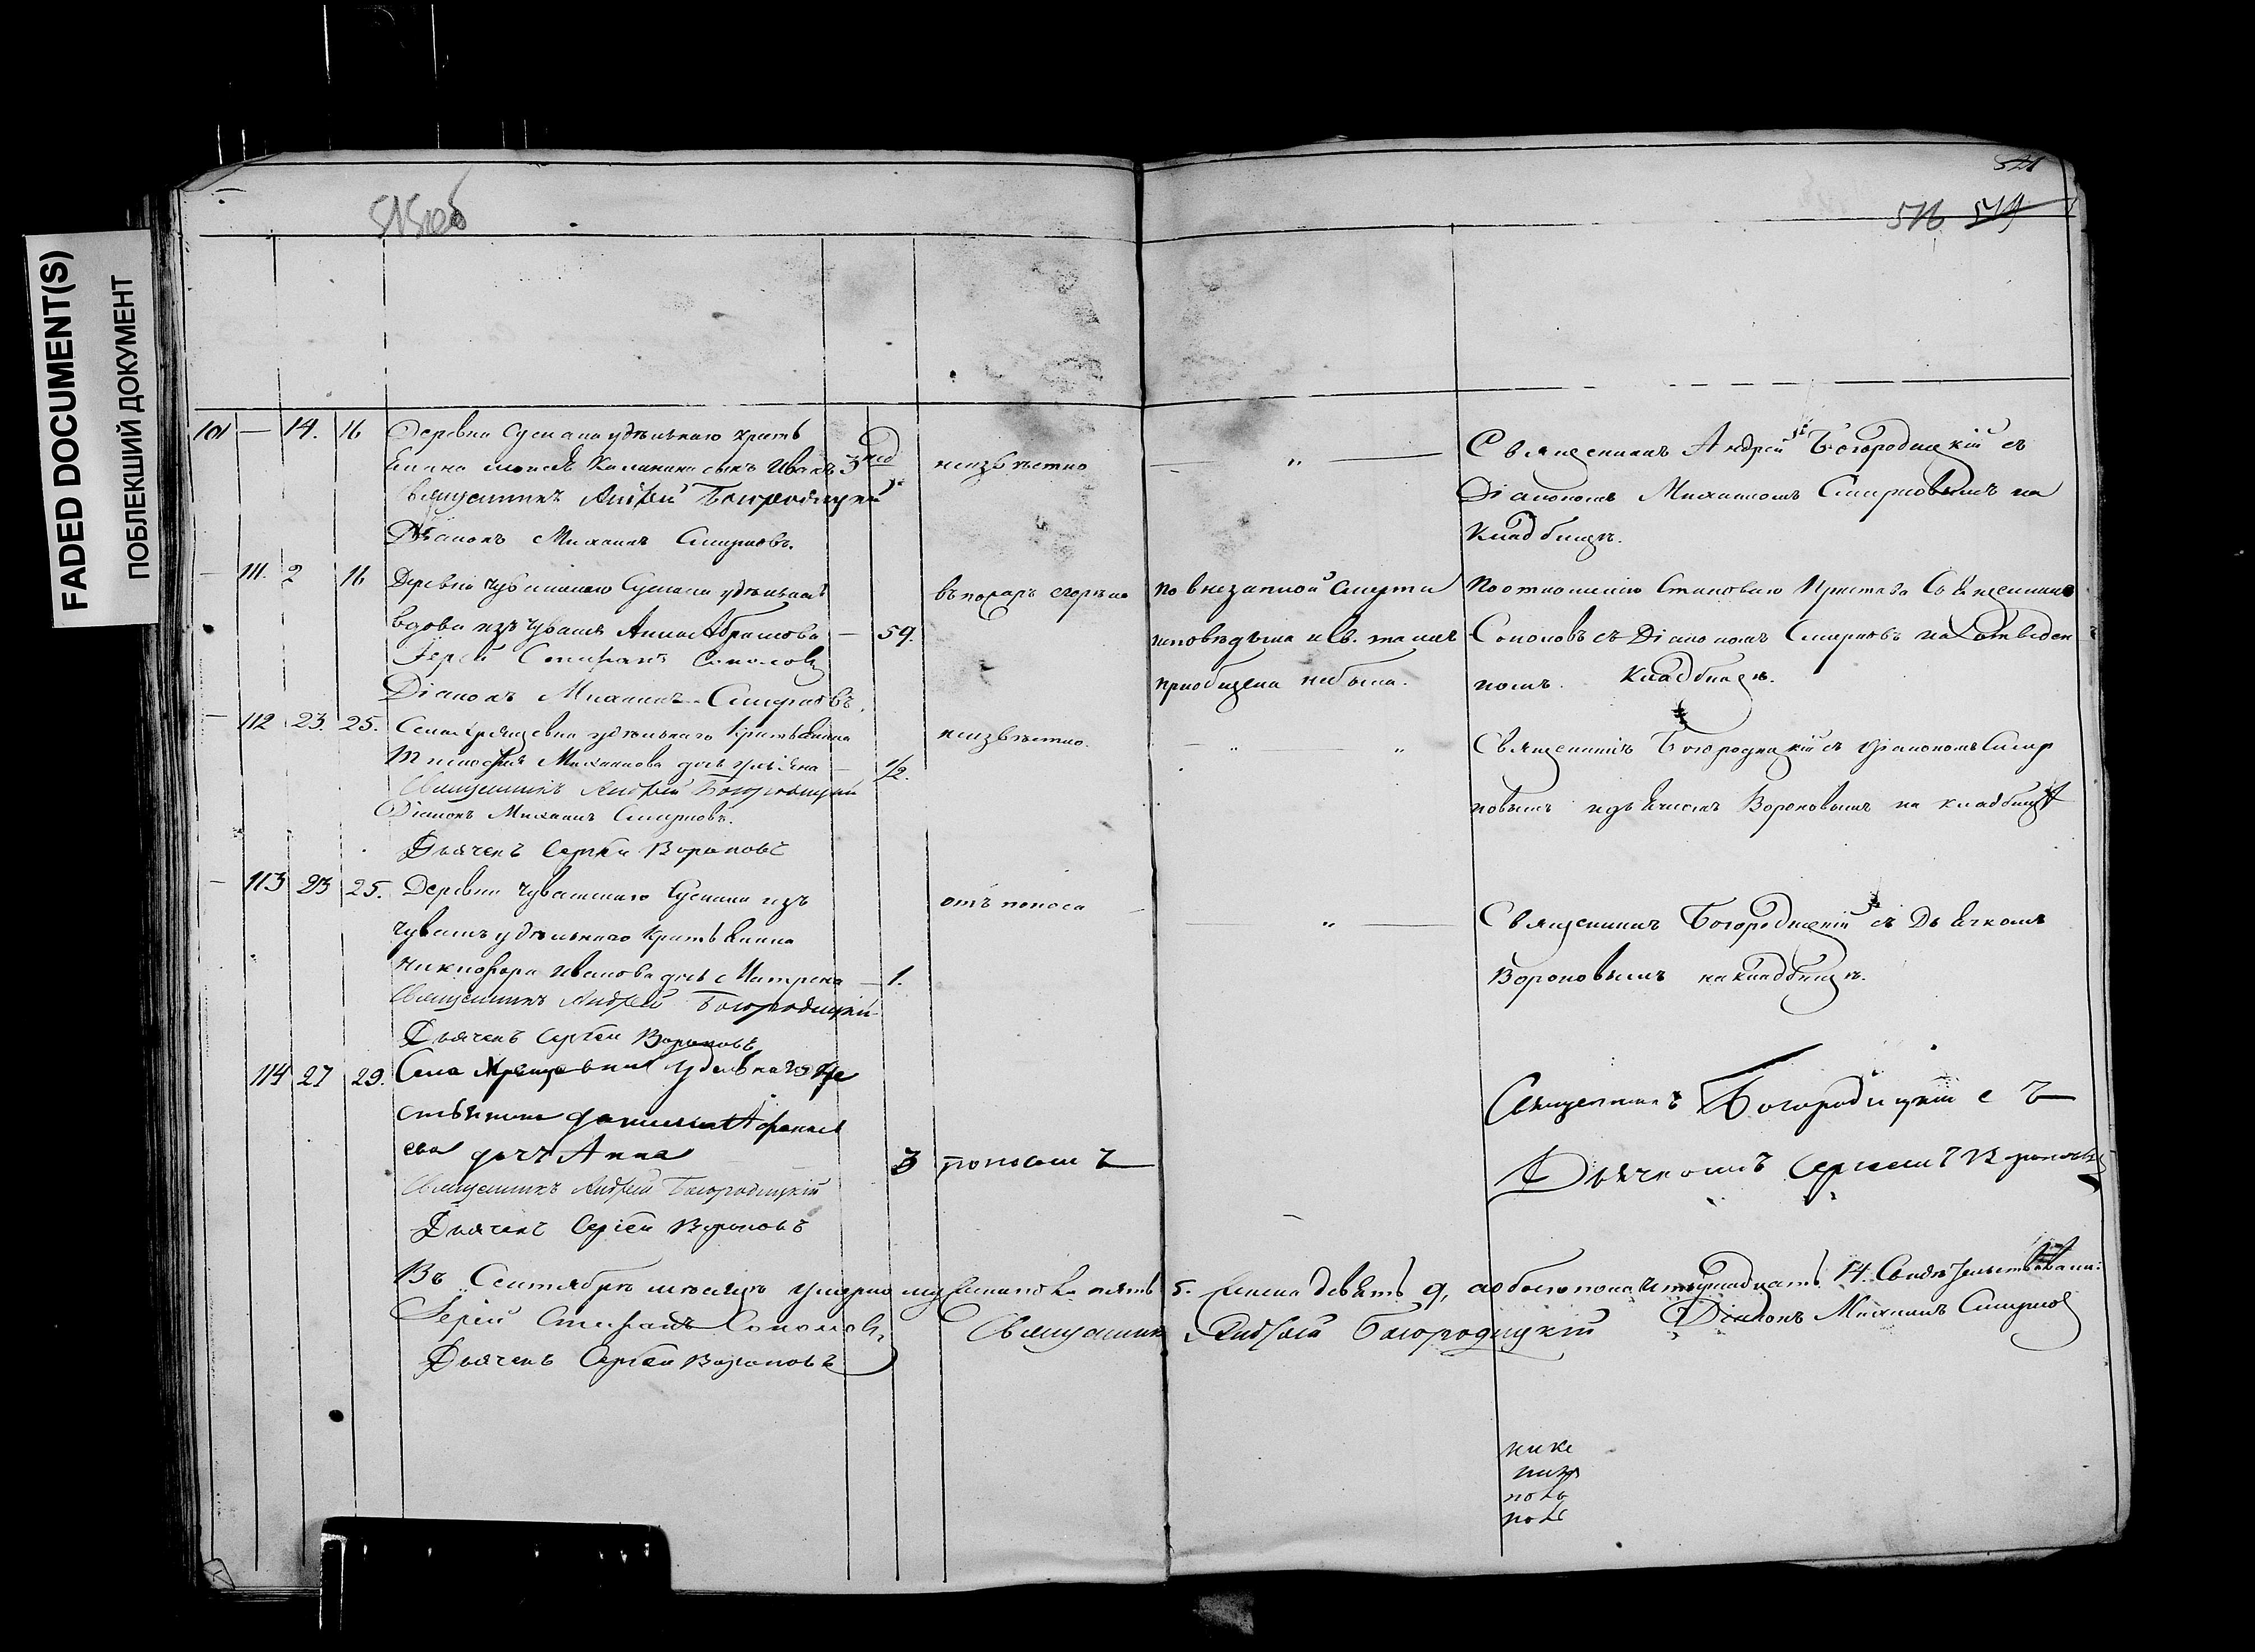 FADED DOCUMENT(S)
ПОБЛЕКШИЙ ДОКУМЕНТ
515об
521
516 519
101 — 14. 16 Деревни Сускана удѣльнаго крестьянина Калинина сынъ Иванъ 3 нед неизвѣстно — „ — Священникъ Андрей Богородицкій съ
Священникъ Андрей Богородицкій Діакономъ Михаиломъ Смирновымъ на
Діаконъ Михаилъ Смирновъ. кладбищѣ.
— 111. 2 16 Деревни Чувашскаго Сускана удѣльная въ пожаръ сгорѣла По внезапной смерти По отношенію Становаго Пристава Священникъ
вдова изъ чувашъ Анна Абрамова — 59. исповѣдына и св. таинъ Соколовъ съ Діакономъ Смирновъ на отведен
Іерей Стефанъ Соколовъ пріобщена небыла. номъ. Кладбищѣ.
Діаконъ Михаилъ Смирновъ.
— 112 23. 25. Села Хрящевки удѣльнаго крестьянина неизвѣстно. — „ — „ Священникъ Богородицкій съ Діакономъ Смир
Тимофея Михаилова дочь — 1/2. новымъ и дьячкомъ Вороновымъ на кладбищѣ
Священникъ Андрей Богородицкій
Діаконъ Михаилъ Смирновъ.
Дьячекъ Сергѣй Вороновъ
— 113 23 25. Деревни Чувашскаго Сускана изъ отъ поноса — „ — Священникъ Богородицкій съ Дьячкомъ
чувашъ удѣльнаго крестьянина Вороновымъ на кладбищѣ.
Никифора Иванова дочь Матрена — 1.
Священникъ Андрей Богородицкій
Дьячекъ Сергѣй Вороновъ
114 27 29. Села Хрящевки удѣльнаго кре
стьянина Данила Афанась
ева дочь Анна 3 поносомъ Священникъ Богородицкій съ
Священникъ Андрей Богородицкій Дьячкомъ Сергеемъ Вороновымъ
Дьячекъ Сергѣй Вороновъ
Въ Сентябрѣ мѣсяцѣ умерло муж пять 5. женска девять 9, а обоего пола четырнадцать 14.
Іерей Стефанъ Соколовъ, Священникъ Андрей Богородицкій Діаконъ Михаилъ Смирновъ
Дьячекъ Сергѣй Вороновъ